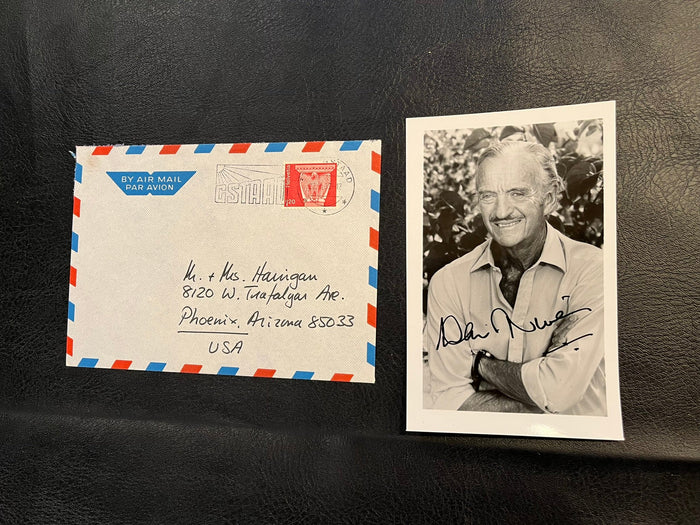 BY AIR MAIL
PAR AVION
GSTAAD
Helvetia
120
Mr. + Mrs. Harrigan
8120 W. Trafalgar Ave.
Phoenix, Arizona 85033
USA
David Niven